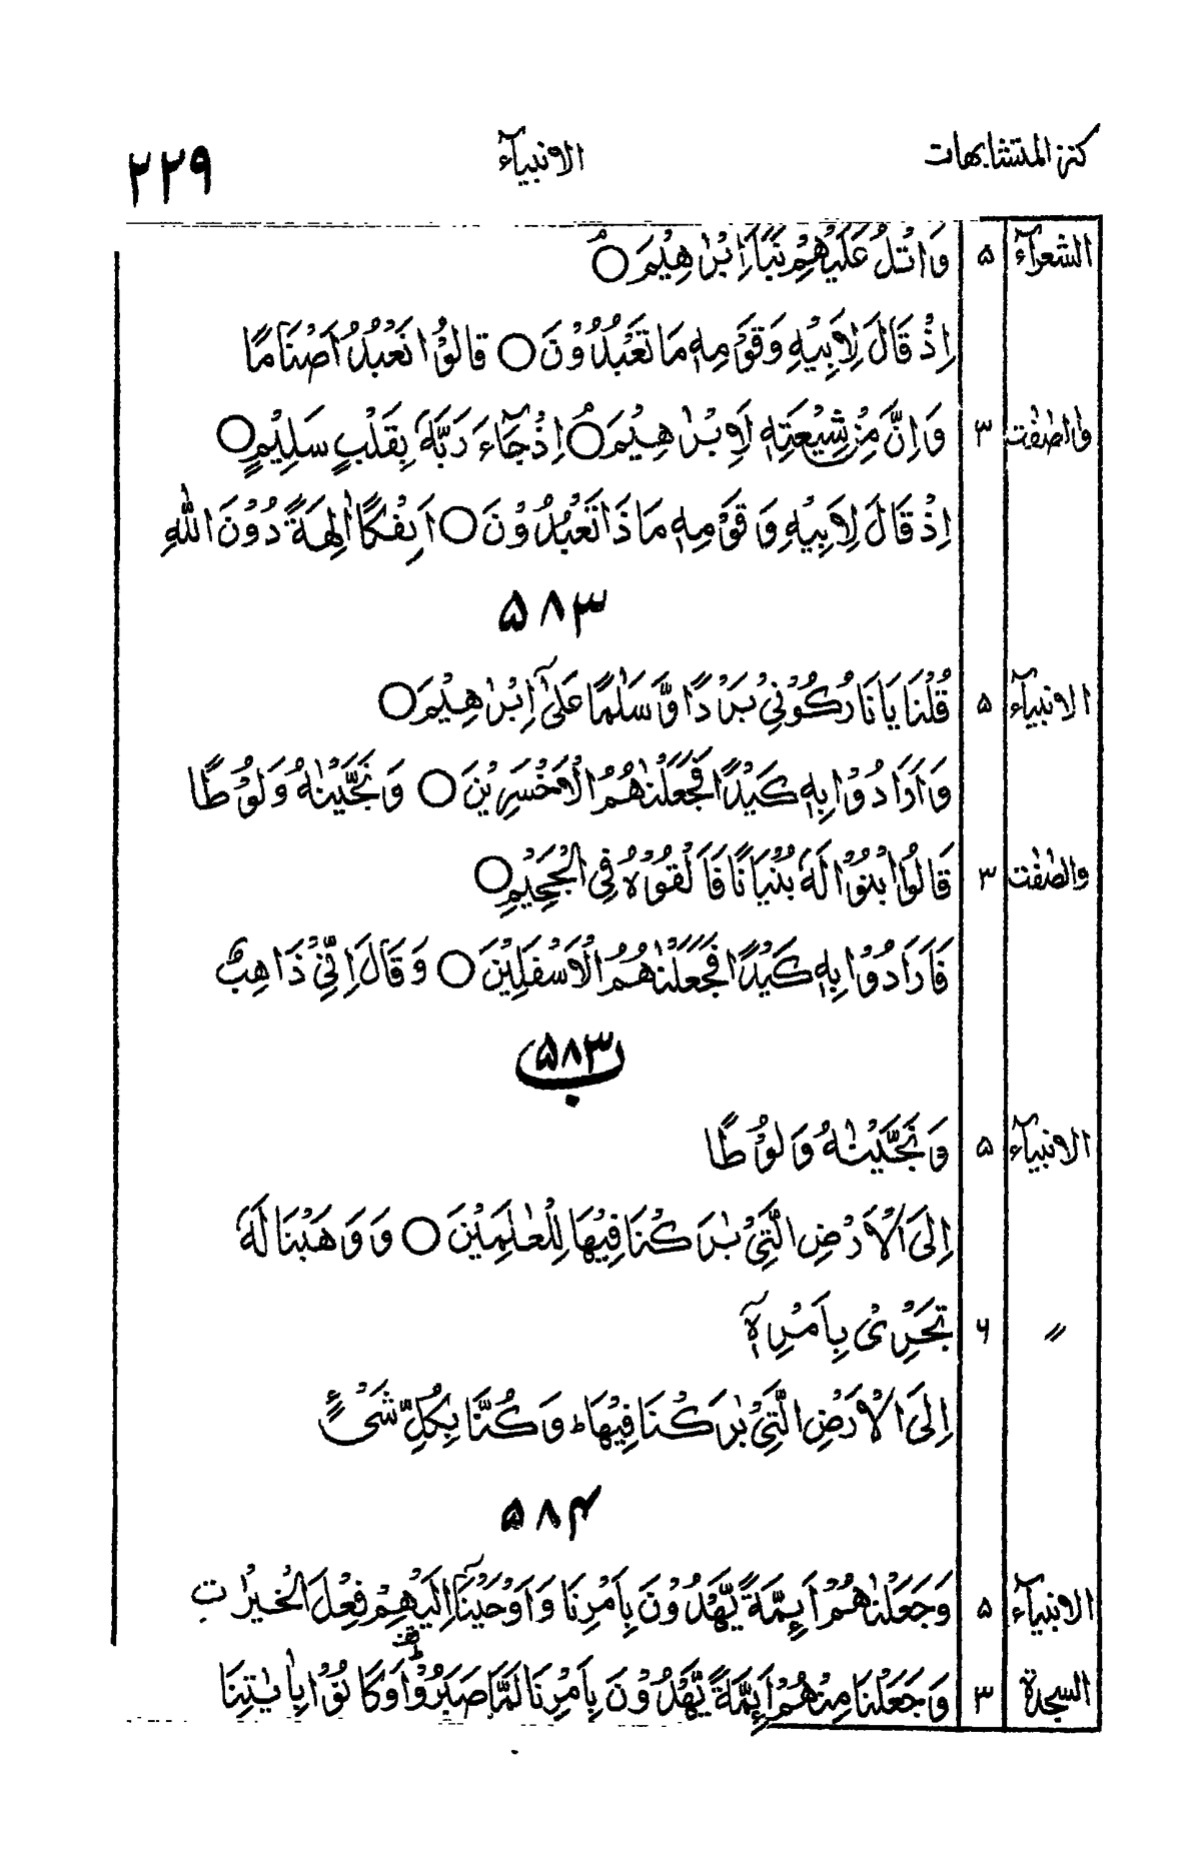 كنز المتشابهات الانبيآء ۲۲۹
الشعرآء ۵ وَاتْلُ عَلَيْهِمْ نَبَاَ اِبْرٰهِيْمَ ○ۘ
اِذْ قَالَ لِاَبِيْهِ وَقَوْمِهٖ مَا تَعْبُدُوْنَ ○ قَالُوْا نَعْبُدُ اَصْنَامًا
والصّٰفّٰت ۳ وَاِنَّ مِنْ شِيْعَتِهٖ لَاِبْرٰهِيْمَ ○ۘ اِذْ جَآءَ رَبَّهٗ بِقَلْبٍ سَلِيْمٍ ○
اِذْ قَالَ لِاَبِيْهِ وَ قَوْمِهٖ مَا ذَا تَعْبُدُوْنَ ○ اَئِفْكًا اٰلِهَةً دُوْنَ اللّٰهِ
۵۸۳
الانبيآء ۵ قُلْنَا يَا نَارُ كُوْنِيْ بَرْدًا وَّ سَلٰمًا عَلٰٓى اِبْرٰهِيْمَ ○
وَاَرَادُوْا بِهٖ كَيْدًا فَجَعَلْنٰهُمُ الْاَخْسَرِيْنَ ○ وَنَجَّيْنٰهُ وَلُوْطًا
والصّٰفّٰت ۳ قَالُوا ابْنُوْا لَهٗ بُنْيَانًا فَاَلْقُوْهُ فِى الْجَحِيْمِ ○
فَاَرَادُوْا بِهٖ كَيْدًا فَجَعَلْنٰهُمُ الْاَسْفَلِيْنَ ○ وَقَالَ اِنِّيْ ذَاهِبٌ
۵۸۳ ب
الانبيآء ۵ وَنَجَّيْنٰهُ وَلُوْطًا
اِلَى الْاَرْضِ الَّتِيْ بٰرَكْنَا فِيْهَا لِلْعٰلَمِيْنَ ○ وَوَهَبْنَا لَهٗ
〃 ۶ تَجْرِيْ بِاَمْرِهٖٓ
اِلَى الْاَرْضِ الَّتِيْ بٰرَكْنَا فِيْهَا ؕ وَكُنَّا بِكُلِّ شَيْءٍ
۵۸۴
الانبيآء ۵ وَجَعَلْنٰهُمْ اَئِمَّةً يَّهْدُوْنَ بِاَمْرِنَا وَاَوْحَيْنَآ اِلَيْهِمْ فِعْلَ الْخَيْرٰتِ
السجدة ۳ وَجَعَلْنَا مِنْهُمْ اَئِمَّةً يَّهْدُوْنَ بِاَمْرِنَا لَمَّا صَبَرُوْا وَكَانُوْا بِاٰيٰتِنَا